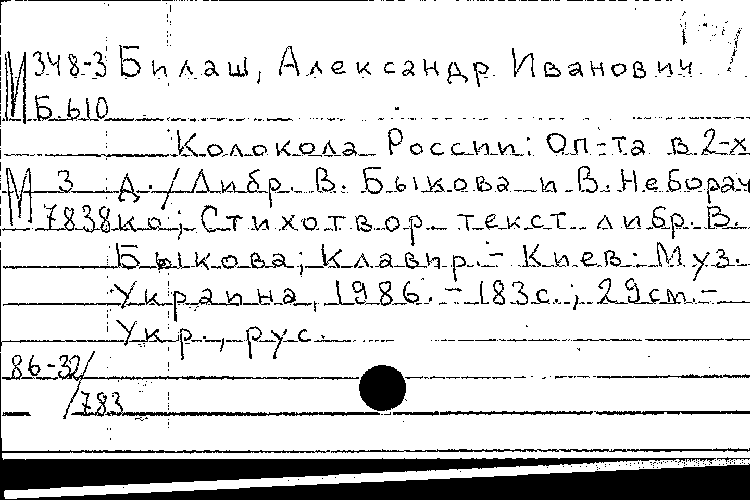 М 348-3 Билаш, Александр Иванович
Б 610
Колокола России: Оп-та в 2-х
М 3 д. / Либр. В. Быкова и В. Неборач
7838 ко; Стихотвор. текст либр. В.
Быкова; Клавир.- Киев: Муз.
Украина, 1986. - 183с.; 29см.-
Укр., рус.
86-32/
783